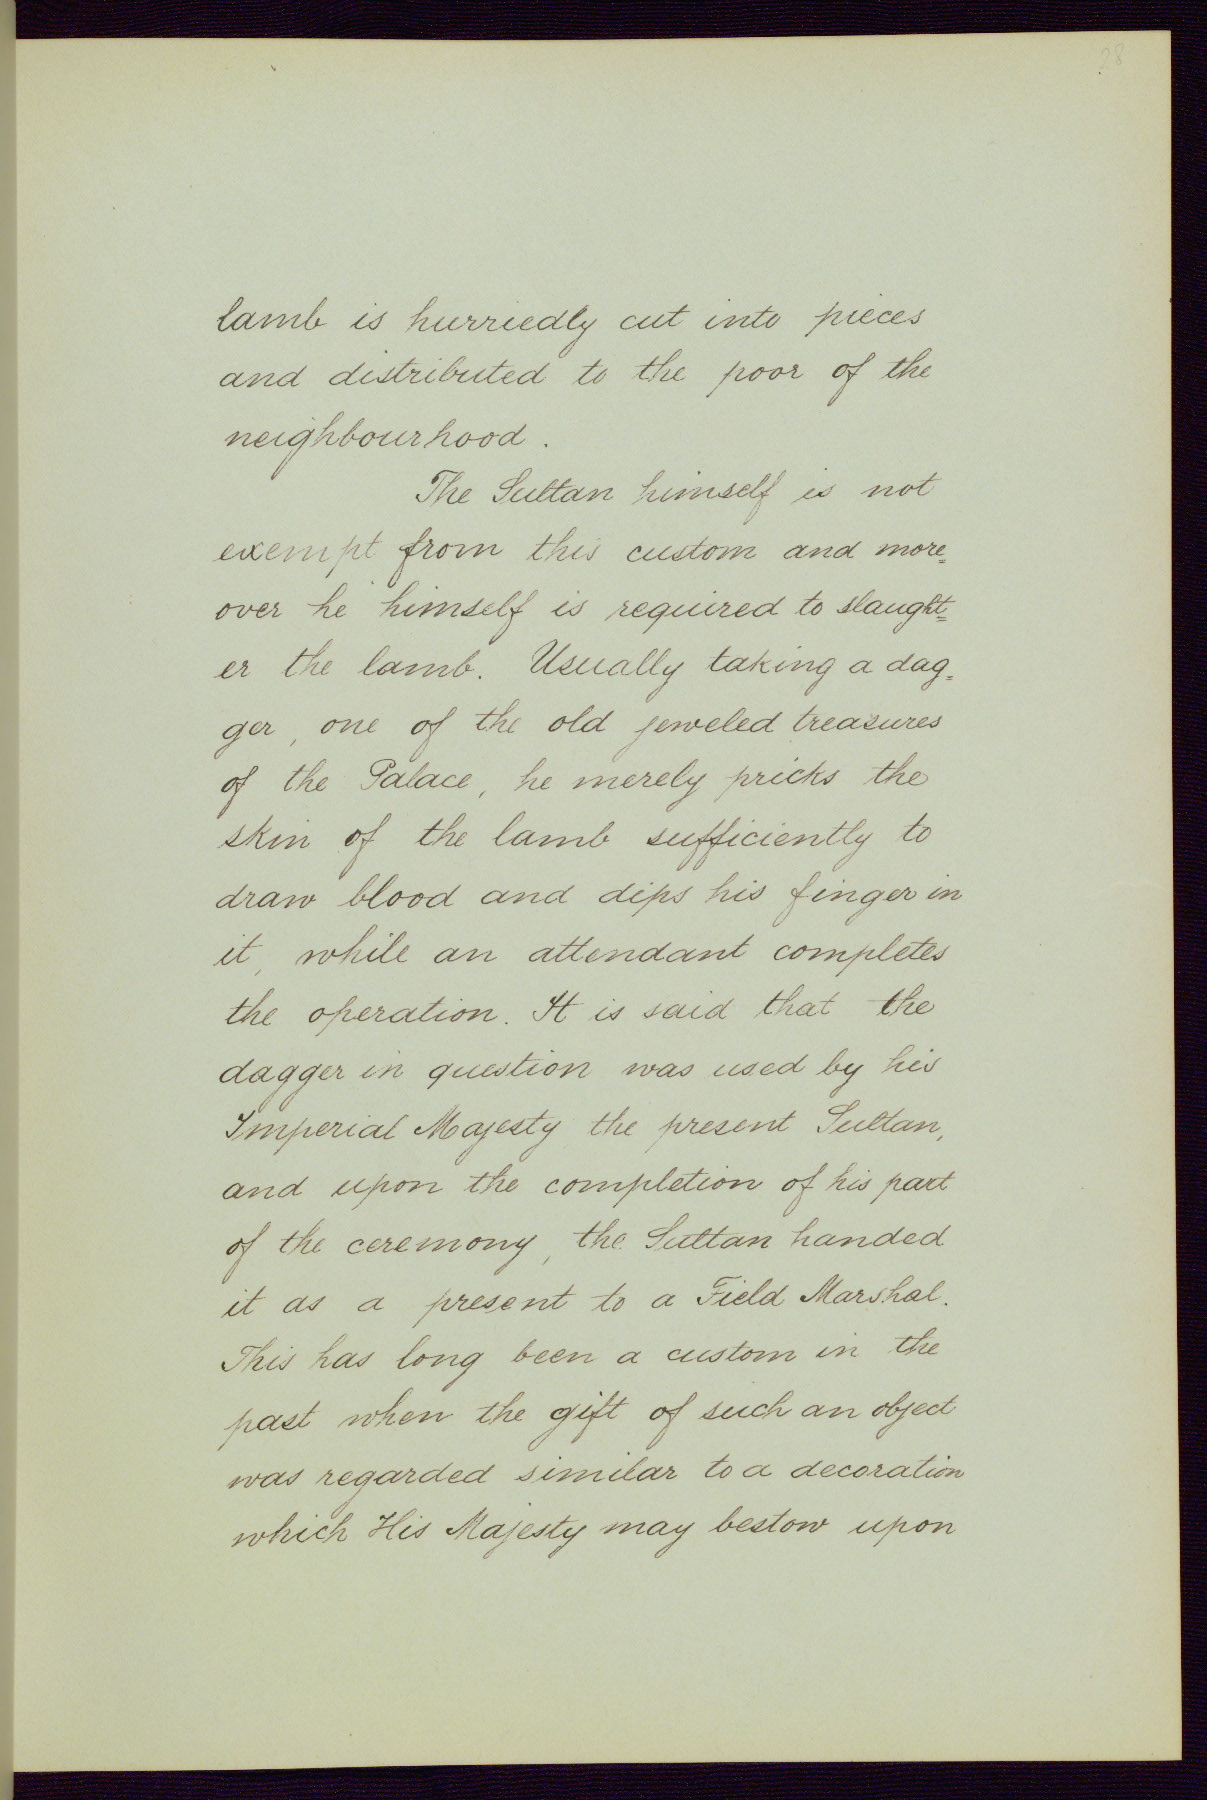 28
lamb is hurriedly cut into pieces
and distributed to the poor of the
neighbourhood.
The Sultan himself is not
exempt from this custom and more=
over he himself is required to slaught=
er the lamb. Usually taking a dag=
ger, one of the old jeweled treasures
of the Palace, he merely pricks the
skin of the lamb sufficiently to
draw blood and dips his finger in
it, while an attendant completes
the operation. It is said that the
dagger in question was used by his
Imperial Majesty the present Sultan,
and upon the completion of his part
of the ceremony, the Sultan handed
it as a present to a Field Marshal.
This has long been a custom in the
past when the gift of such an object
was regarded similar to a decoration
which His Majesty may bestow upon